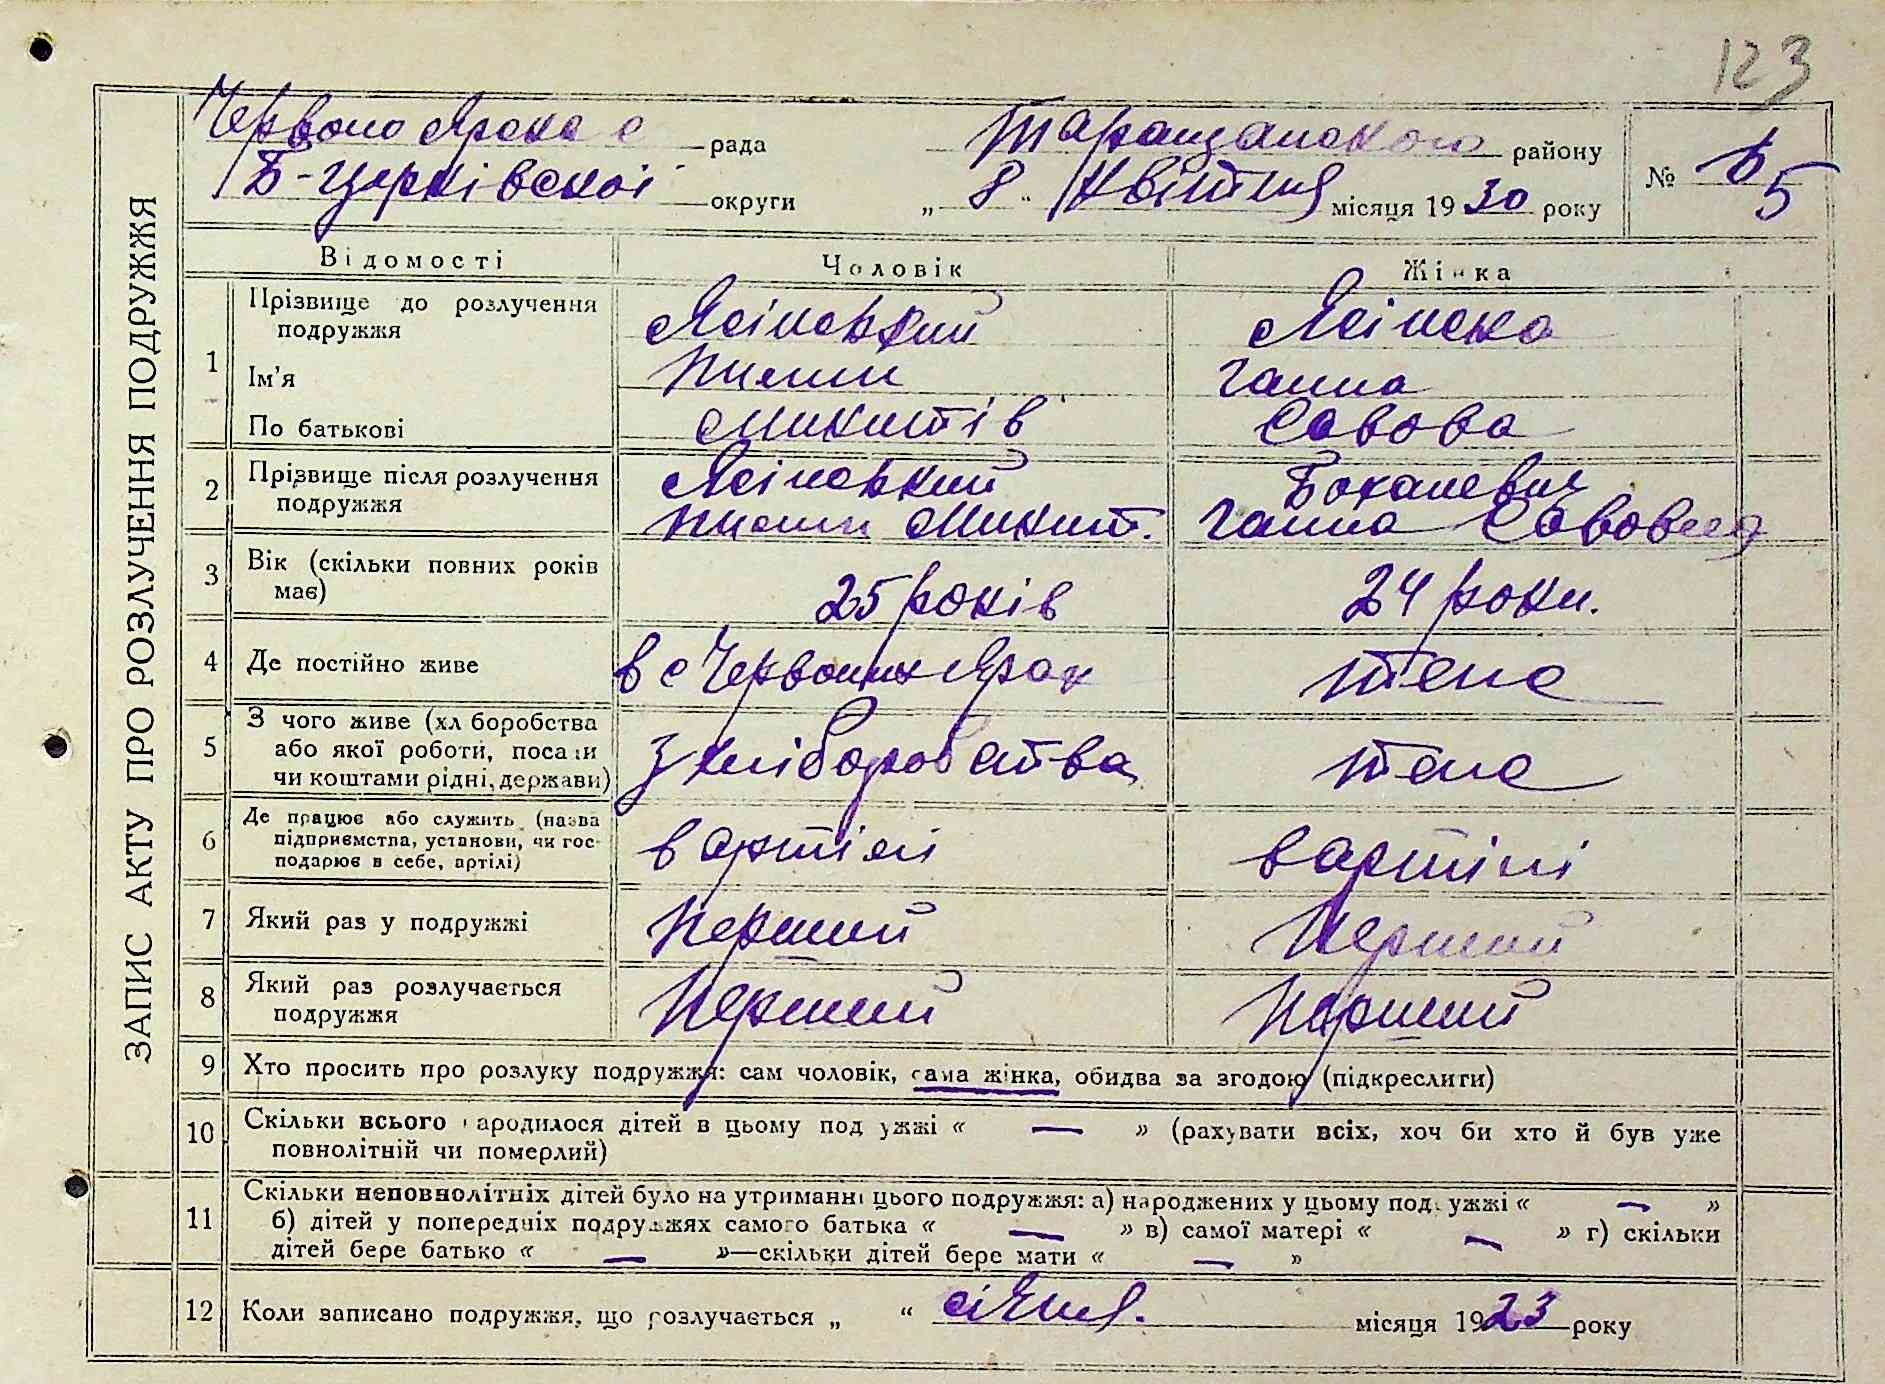 123
ЗАПИС АКТУ ПРО РОЗЛУЧЕННЯ ПОДРУЖЖЯ
Червоно Ярська с рада Таращанского району
Б-Церківської округи „ 8 “ Квітня місяця 1930 року № 5
Відомості Чоловік Жінка
1 Прізвище до розлучення подружжя Ясінський Ясінска
Ім’я Пилип Ганна
По батькові Микитів Савова
2 Прізвище після розлучення Ясінський Боханевич
подружжя Пилип Микит. Ганна Савовна
3 Вік (скільки повних років має) 25 років 24 роки.
4 Де постійно живе в с Червоних Ярах теж
5 З чого живе (хліборобства
або якої роботи, посади з хліборобства теж
чи коштами рідні, держави)
6 Де працює або служить (назва
підприємства, установи, чи гос-
подарює в себе, артілі) в артілі в артілі
7 Який раз у подружжі Перший Перший
8 Який раз розлучається
подружжя Перший Перший
9 Хто просить про розлуку подружжя: сам чоловік, сама жінка, обидва за згодою (підкреслити)
10 Скільки всього народилося дітей в цьому подружжі « — » (рахувати всіх, хоч би хто й був уже
повнолітній чи померлий)
11 Скільки неповнолітніх дітей було на утриманні цього подружжя: а) народжених у цьому подружжі « — »
б) дітей у попередніх подружжях самого батька « — » в) самої матері « — » г) скільки
дітей бере батько « — »—скільки дітей бере мати « — »
12 Коли записано подружжя, що розлучається „ “ січня. місяця 1923 року